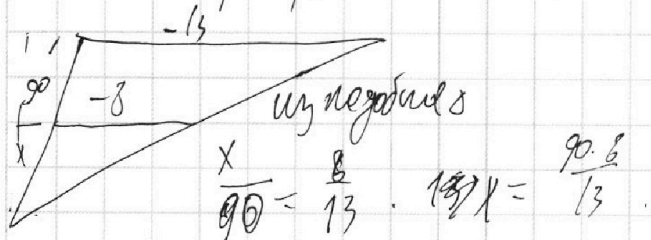 -13
90
-8
x
из подобия
x/90 = 8/13 . x = 90·8/13 .